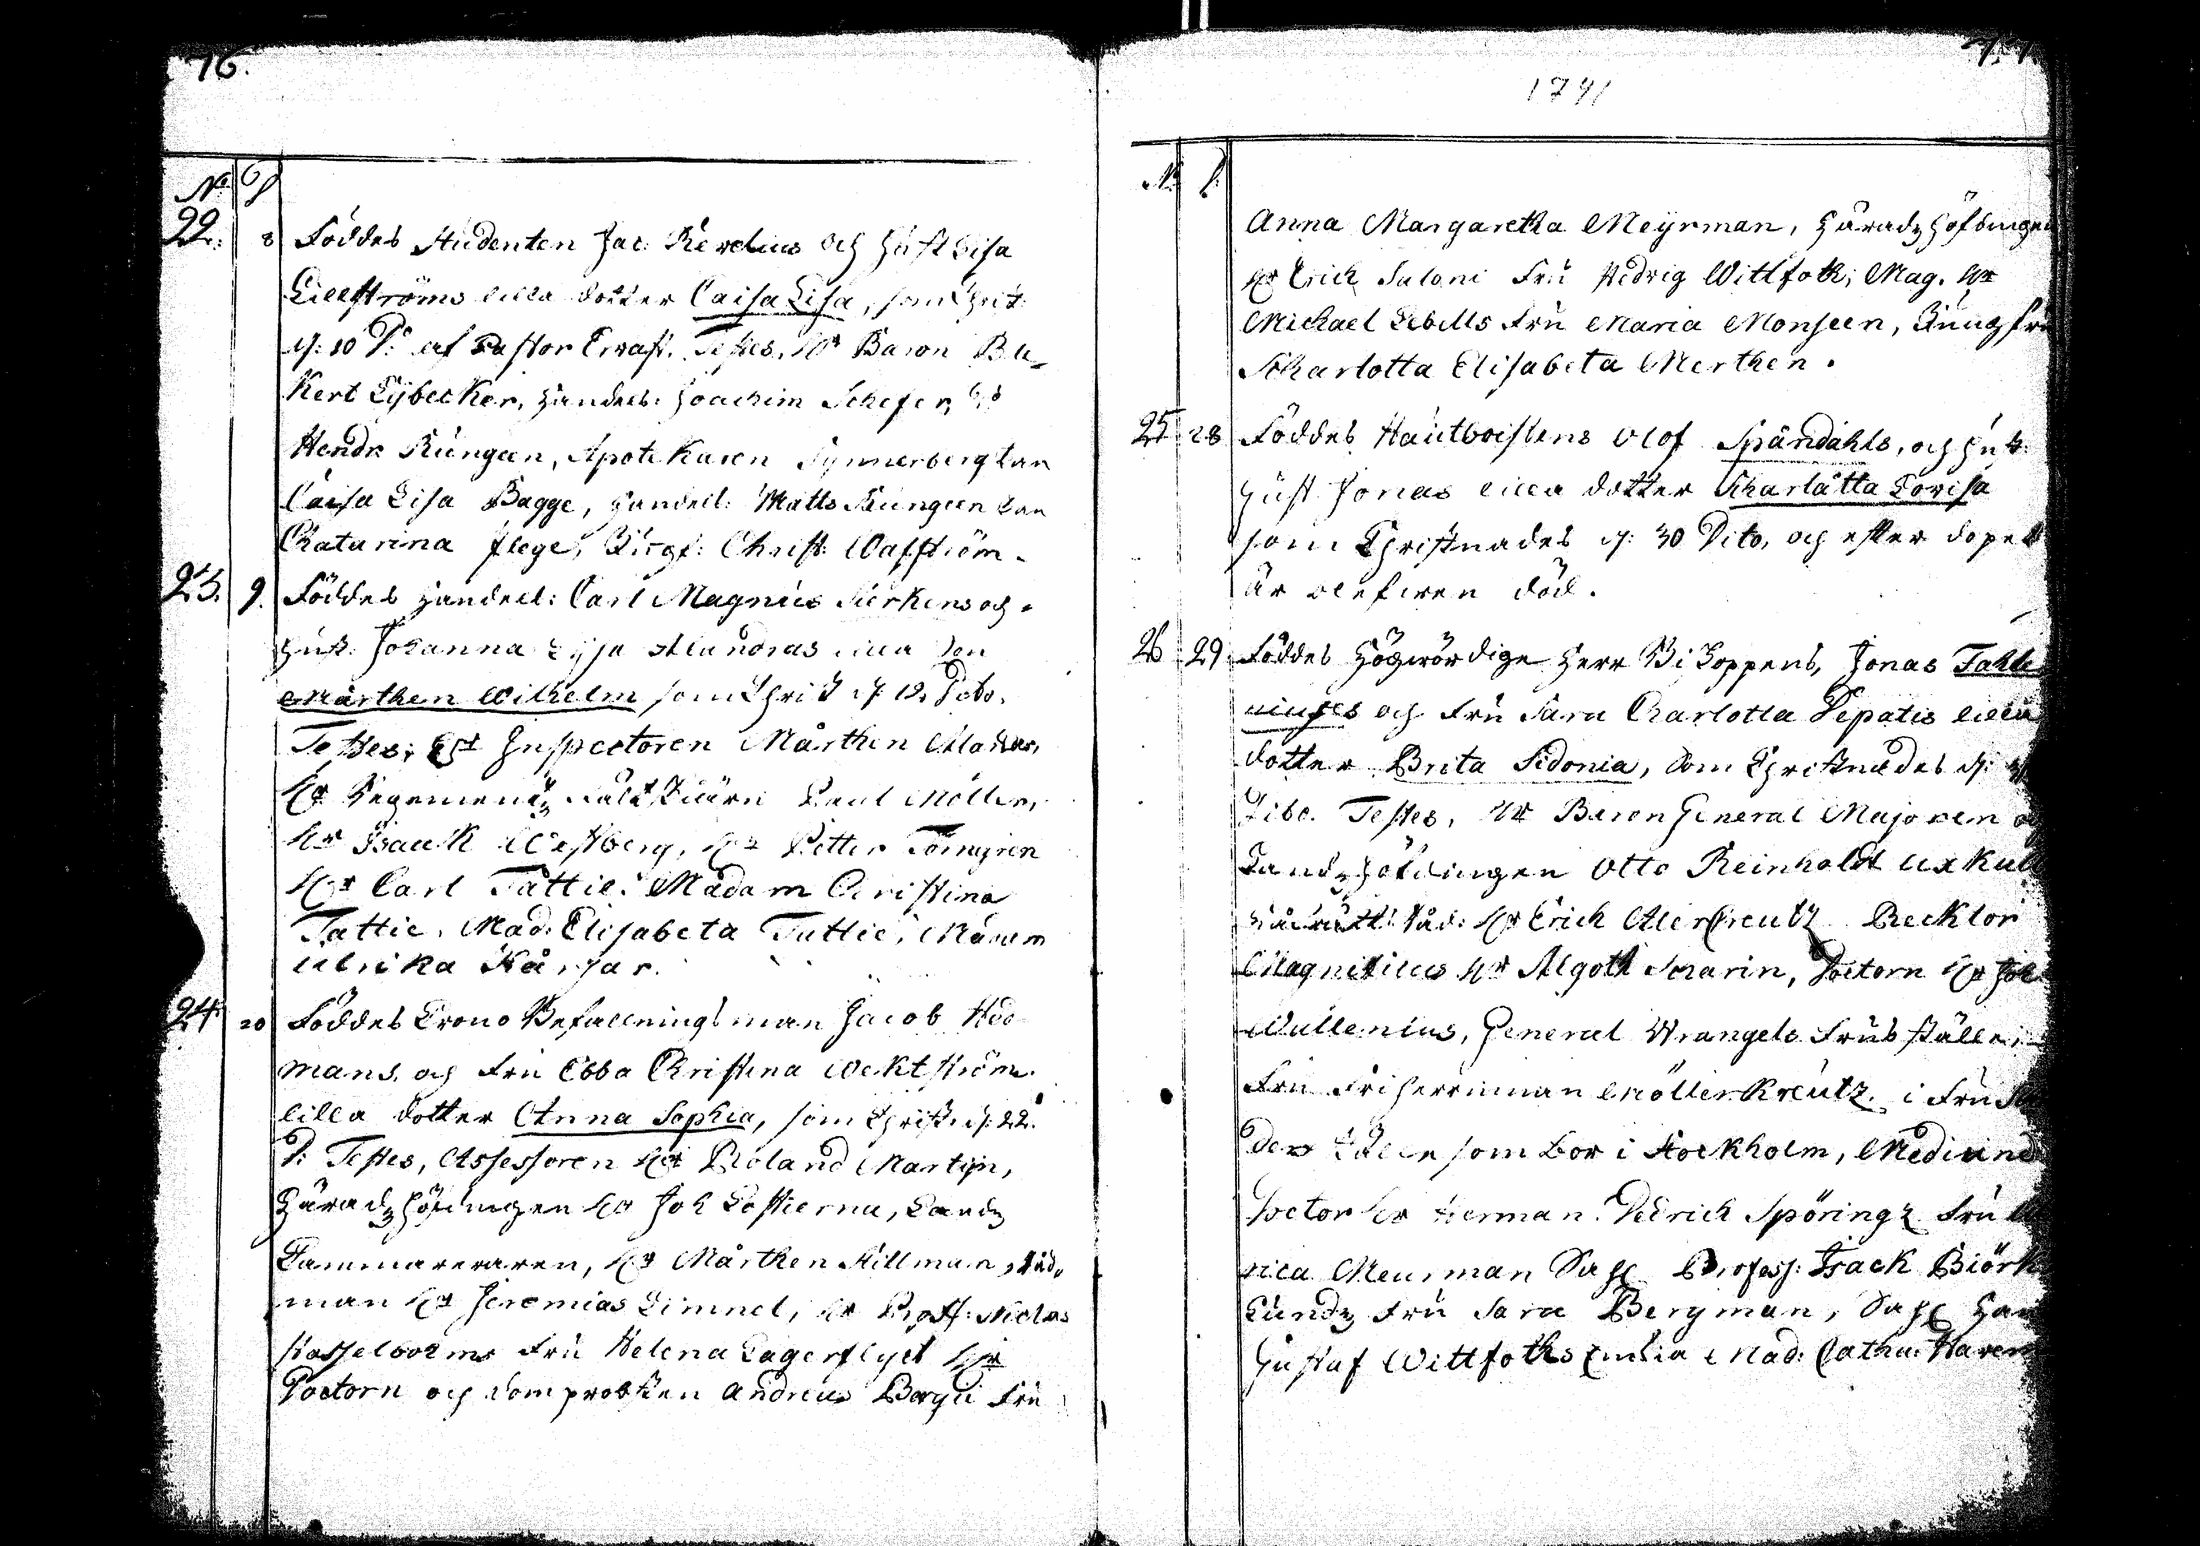 76.
No
22. 8 Föddes Studenten Jac: Revelius och Hust Lisa
Lillströms lilla dotter Caisa Lisa, som Christ:
d: 10 D: af Pastor Ervast. Testes, Hr Baron Be-
Kert Lybecker, Handels: Joachim Schefer,
Hendr Küngeen, Apotekaren Synnerberg
Caisa Lisa Bagge, Handell: Matts Küngeen
Chatarina flege, Jungf: Christ: Wasström.
23. 9. Föddes Handell: Carl Magnus och
Hust: Johanna lilla Son
Mårthen Wilhelm som Christ d. 12 Dito.
Testes: Inspectoren Mårthen
Hr Regements fältskiärn Paul Möller,
Hr Isaack Westberg, Hr Petter Törngren
Hr Carl Tattie. Madam Christina
Tattie. Mad. Elisabeta Tattie. Madam
Ulrika
24 20 Föddes Crono Befallningsman Jacob Hoo-
mans, och Fru Ebba Christina
lilla dotter Anna Sophia, som Christ: d: 22.
D: Testes, Assessoren Hr Roland Martijn,
Häradzhöfdingen Hr Joh Lostierna, Landz
Cammereraren, Hr Mårthen Killman, Råd-
man Hr Jeremias Limnel, Hr Proff: Niclas
Hasselboms Fru Helena Lagerflycht Hr
Doctorn och domprobsten Andreas Bergii Fru
77
1741
N
Anna Margaretha Meyrman, Häradzhöfdingen
Hr Erich Saloni Fru Hedvig Wittfoth, Mag. Hr
Michael Lebells Fru Maria Monseen, Jungfru
Scharlotta Elisabeta Merthen.
25 28 Föddes Hautboistens Olof Spändahls, och
Hust Jonas lilla dotter Scharlåtta Lovisa
som Christnades d: 30 Dito, och efter dopet
är blefwen död.
26 29 Föddes Högwördige Herr Biskoppens, Jonas Fahle
niuses och Fru Sara Charlotta Depatis lilla
dotter Brita Sidonia, som Christnades d:
Dito. Testes, Hr Baron General Majoren
Landzhöfdingen Otto Reinholdt Uxkull
Håfrätt: Råd: Hr Erich Alercreutz Recktor
Magnificus Hr Algoth Scarin, Doctorn Hr Joh
Wallenius, General Wrangels Frus ställe,
Fru Friherrinnan Möllerkreutz. i Fru
ställe som bor i Stockholm, Medicine
Doctor Hr Herman Diedrich Spöringz Fru
rica Meurman Sahl Profess: Isack Biörk
Lundz Fru Sara Bergman, Sahl
Gustaf Wittfoths Enkia Mad: Catha: